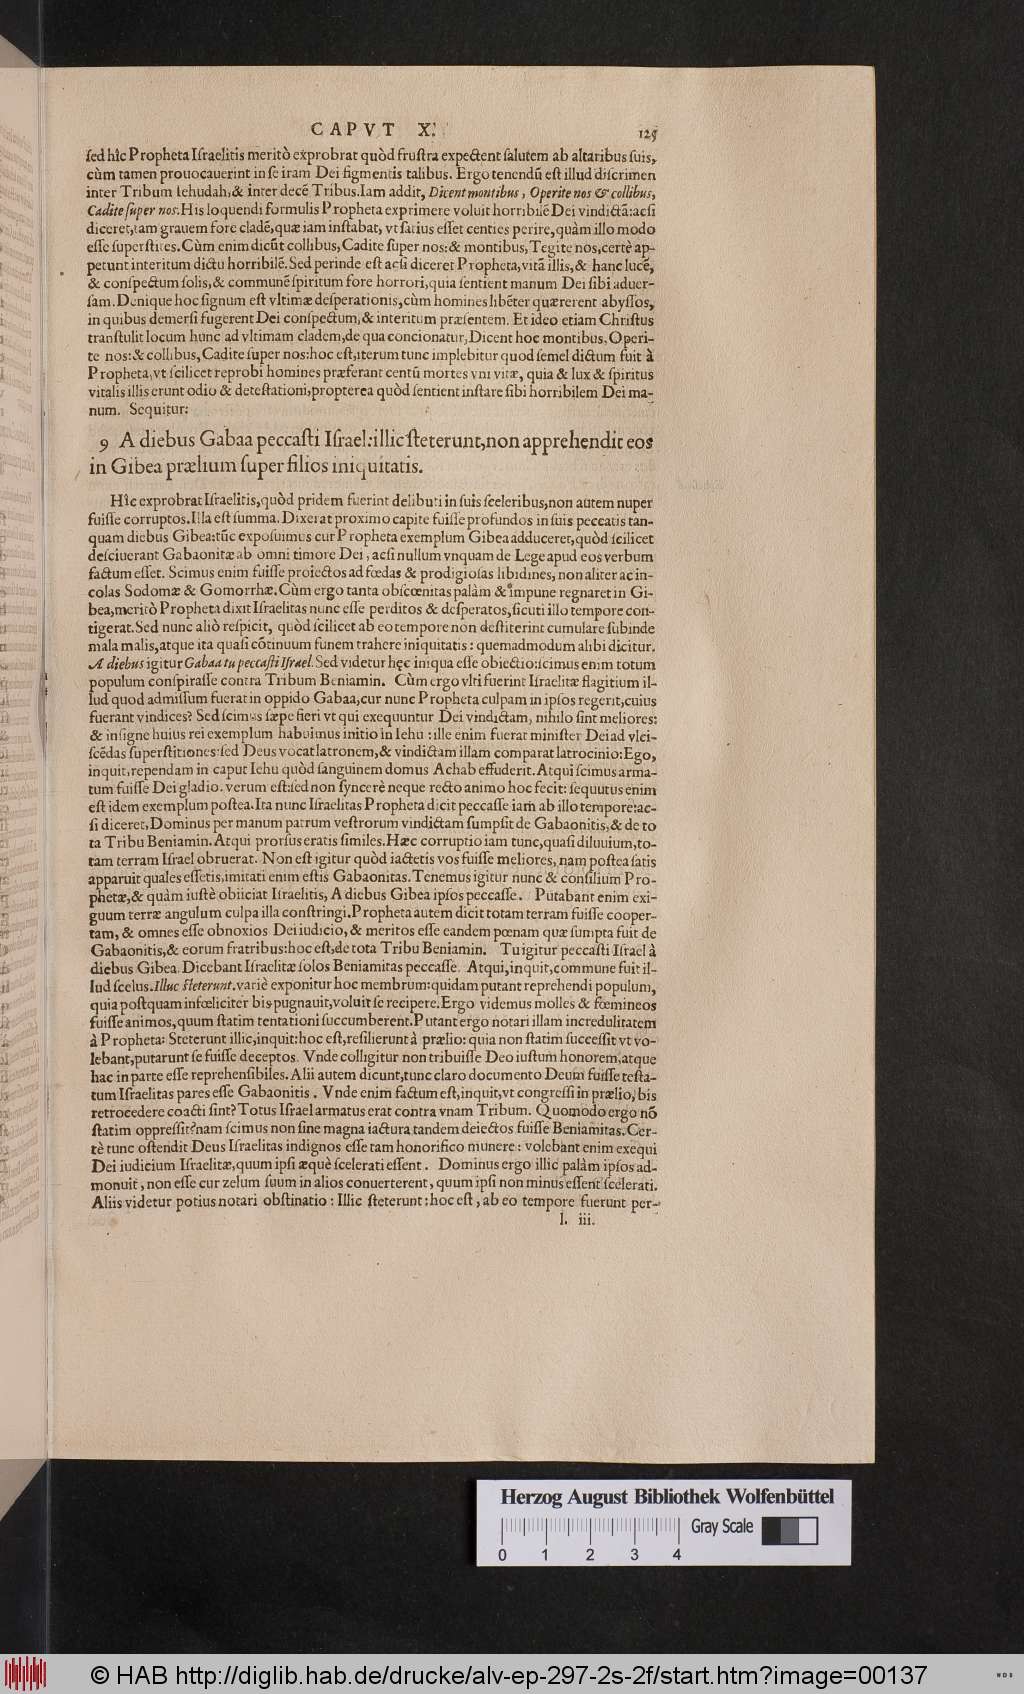 CAPVT X. 125
ſed hîc Propheta Iſraelitis meritò exprobrat quòd fruſtra expectent ſalutem ab altaribus ſuis,
cùm tamen prouocauerint in ſe iram Dei figmentis talibus. Ergo tenendū eſt illud diſcrimen
inter Tribum Iehudah, & inter decē Tribus. Iam addit, Dicent montibus, Operite nos & collibus,
Cadite ſuper nos. His loquendi formulis Propheta exprimere voluit horribilē Dei vindictā: acſi
diceret, tam grauem fore cladē, quæ iam inſtabat, vt ſatius eſſet centies perire, quàm illo modo
eſſe ſuperſtites. Cùm enim dicūt collibus, Cadite ſuper nos: & montibus, Tegite nos, certè ap-
petunt interitum dictu horribilē. Sed perinde eſt acſi diceret Propheta, vitā illis, & hanc lucē,
& conſpectum ſolis, & communē ſpiritum fore horrori, quia ſentient manum Dei ſibi aduer-
ſam. Denique hoc ſignum eſt vltimæ deſperationis, cùm homines libēter quærerent abyſſos,
in quibus demerſi fugerent Dei conſpectum, & interitum præſentem. Et ideo etiam Chriſtus
tranſtulit locum hunc ad vltimam cladem, de qua concionatur, Dicent hoc montibus, Operi-
te nos: & collibus, Cadite ſuper nos: hoc eſt, iterum tunc implebitur quod ſemel dictum fuit à
Propheta, vt ſcilicet reprobi homines præferant centū mortes vni vitæ, quia & lux & ſpiritus
vitalis illis erunt odio & deteſtationi, propterea quòd ſentient inſtare ſibi horribilem Dei ma-
num. Sequitur:
9 A diebus Gabaa peccaſti Iſrael: illic ſteterunt, non apprehendit eos
in Gibea prælium ſuper filios iniquitatis.
Hîc exprobrat Iſraelitis, quòd pridem fuerint delibuti in ſuis ſceleribus, non autem nuper
fuiſſe corruptos. Illa eſt ſumma. Dixerat proximo capite fuiſſe profundos in ſuis peccatis tan-
quam diebus Gibea: tūc expoſuimus cur Propheta exemplum Gibea adduceret, quòd ſcilicet
deſciuerant Gabaonitæ ab omni timore Dei, acſi nullum vnquam de Lege apud eos verbum
factum eſſet. Scimus enim fuiſſe proiectos ad fœdas & prodigioſas libidines, non aliter ac in-
colas Sodomæ & Gomorrhæ. Cùm ergo tanta obſcœnitas palàm & impune regnaret in Gi-
bea, meritò Propheta dixit Iſraelitas nunc eſſe perditos & deſperatos, ſicuti illo tempore con-
tigerat. Sed nunc aliò reſpicit, quòd ſcilicet ab eo tempore non deſtiterint cumulare ſubinde
mala malis, atque ita quaſi cōtinuum funem trahere iniquitatis: quemadmodum alibi dicitur.
A diebus igitur Gabaa tu peccaſti Iſrael. Sed videtur hęc iniqua eſſe obiectio: ſcimus enim totum
populum conſpiraſſe contra Tribum Beniamin. Cùm ergo vlti fuerint Iſraelitæ flagitium il-
lud quod admiſſum fuerat in oppido Gabaa, cur nunc Propheta culpam in ipſos regerit, cuius
fuerant vindices? Sed ſcimus ſæpe fieri vt qui exequuntur Dei vindictam, nihilo ſint meliores:
& inſigne huius rei exemplum habuimus initio in Iehu: ille enim fuerat miniſter Dei ad vlci-
ſcēdas ſuperſtitiones: ſed Deus vocat latronem, & vindictam illam comparat latrocinio: Ego,
inquit, rependam in caput Iehu quòd ſanguinem domus Achab effuderit. Atqui ſcimus arma-
tum fuiſſe Dei gladio. verum eſt: ſed non ſyncerè neque recto animo hoc fecit: ſequutus enim
eſt idem exemplum poſtea. Ita nunc Iſraelitas Propheta dicit peccaſſe iam ab illo tempore: ac-
ſi diceret, Dominus per manum patrum veſtrorum vindictam ſumpſit de Gabaonitis, & de to
ta Tribu Beniamin. Atqui prorſus eratis ſimiles. Hæc corruptio iam tunc, quaſi diluuium, to-
tam terram Iſrael obruerat. Non eſt igitur quòd iactetis vos fuiſſe meliores, nam poſtea ſatis
apparuit quales eſſetis, imitati enim eſtis Gabaonitas. Tenemus igitur nunc & conſilium Pro-
phetæ, & quàm iuſtè obiiciat Iſraelitis, A diebus Gibea ipſos peccaſſe. Putabant enim exi-
guum terræ angulum culpa illa conſtringi. Propheta autem dicit totam terram fuiſſe cooper-
tam, & omnes eſſe obnoxios Dei iudicio, & meritos eſſe eandem pœnam quæ ſumpta fuit de
Gabaonitis, & eorum fratribus: hoc eſt, de tota Tribu Beniamin. Tu igitur peccaſti Iſrael à
diebus Gibea. Dicebant Iſraelitæ ſolos Beniamitas peccaſſe. Atqui, inquit, commune fuit il-
lud ſcelus. Illuc ſteterunt. variè exponitur hoc membrum: quidam putant reprehendi populum,
quia poſtquam infœliciter bis pugnauit, voluit ſe recipere. Ergo videmus molles & fœmineos
fuiſſe animos, quum ſtatim tentationi ſuccumberent. Putant ergo notari illam incredulitatem
à Propheta: Steterunt illic, inquit: hoc eſt, reſilierunt à prælio: quia non ſtatim ſucceſſit vt vo-
lebant, putarunt ſe fuiſſe deceptos. Vnde colligitur non tribuiſſe Deo iuſtum honorem, atque
hac in parte eſſe reprehenſibiles. Alii autem dicunt, tunc claro documento Deum fuiſſe teſta-
tum Iſraelitas pares eſſe Gabaonitis. Vnde enim factum eſt, inquit, vt congreſſi in prælio, bis
retrocedere coacti ſint? Totus Iſrael armatus erat contra vnam Tribum. Quomodo ergo nō
ſtatim oppreſſit? nam ſcimus non ſine magna iactura tandem deiectos fuiſſe Beniamitas. Cer-
tè tunc oſtendit Deus Iſraelitas indignos eſſe tam honorifico munere: volebant enim exequi
Dei iudicium Iſraelitæ, quum ipſi æquè ſcelerati eſſent. Dominus ergo illic palàm ipſos ad-
monuit, non eſſe cur zelum ſuum in alios conuerterent, quum ipſi non minus eſſent ſcelerati.
Aliis videtur potius notari obſtinatio: Illic ſteterunt: hoc eſt, ab eo tempore fuerunt per-
l. iii.
Herzog August Bibliothek Wolfenbüttel
Gray Scale
0 1 2 3 4
© HAB http://diglib.hab.de/drucke/alv-ep-297-2s-2f/start.htm?image=00137
WDB